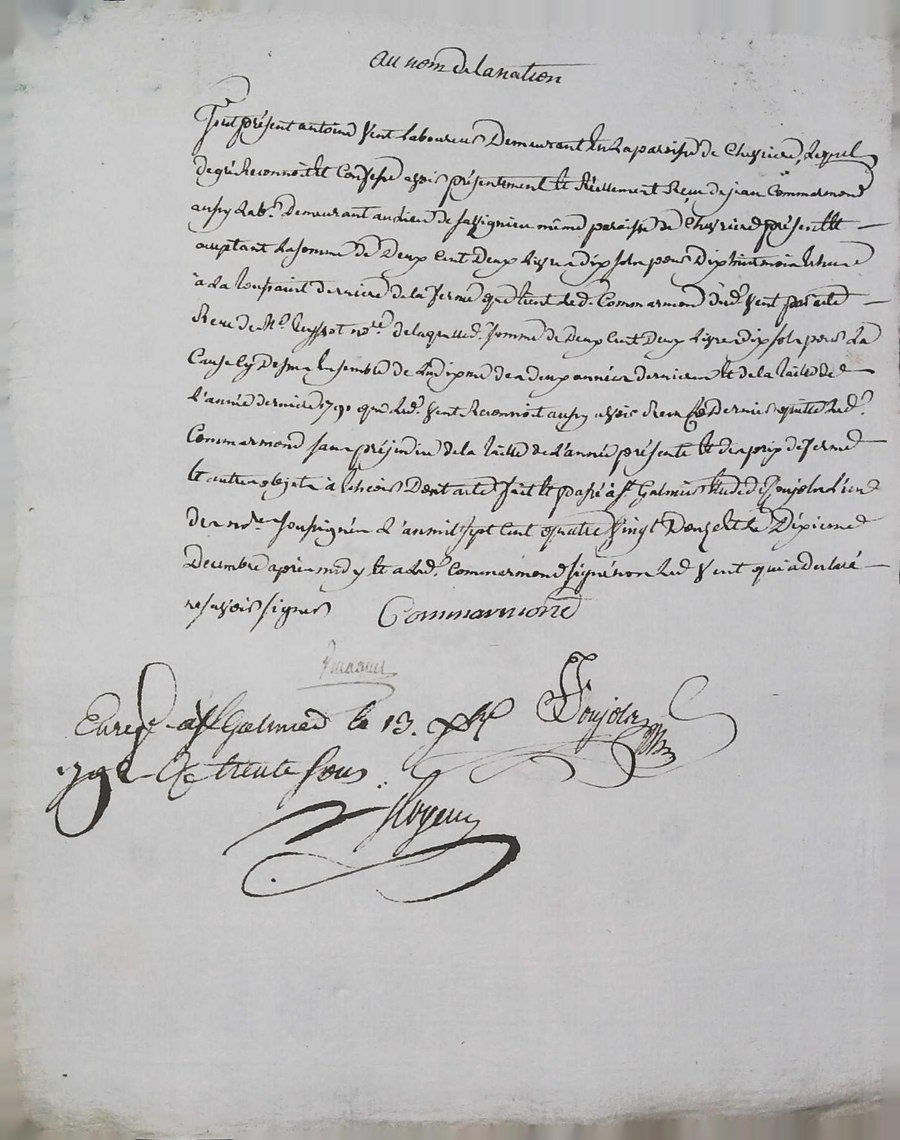 au nom de la nation
fut présent antoine Vent Laboureur Demeurant En La paroisse de Chevrieres, Lequel
de gré Reconnoit Et Confesse avoir présentement Et Réellement Reçu de jean Commarmond
aussy Lab.r Demeurant au Lieu de même paroisse de Chevrieres présent Et
acceptant La somme de Deux Cent Deux Livres dix sols pour Dix huit mois Echus
à La toussaint derniere de La ferme que tient Led. Commarmond dud. Vent par acte
Recu de M.e not.re de laquelle d. somme de deux Cent Deux Livres dix sols pour La
Cause Cy Dessus Ensemble de La dixme des deux années dernieres Et de la taille de
L'année derniere 1791 que Led. Vent Reconnoit aussy avoir Recu Ce Dernier quitte Led.
Commarmond sans préjudice de La taille de L'année présente Et des prix de ferme
Et autres objets à Echoir Dont acte fait Et passé à St. Galmier Etude de Joujoln L'un
des no.res soussignés L'an mil sept Cent quatre Vingt Douze Et Le Dixieme
Decembre apres midy Et a Led. Commarmond signé non Led. Vent qui a declaré
ne savoir signer Commarmond
Enreg.é à St Galmier le 13. xbre Joujoln
1792 Re trente sous